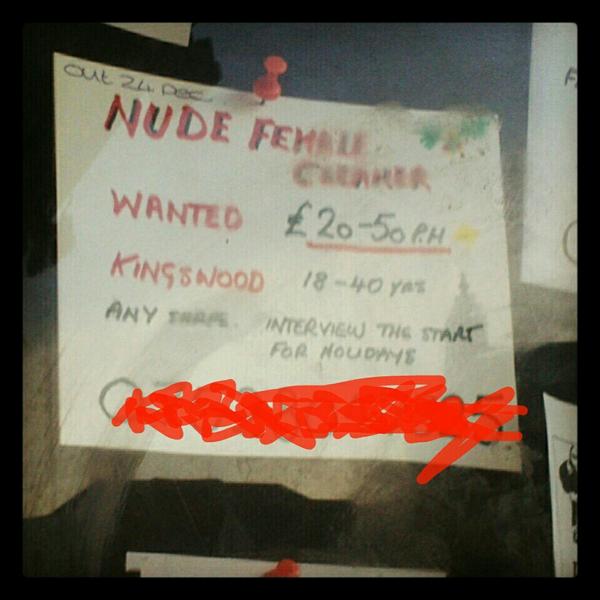 Out 24 Dec
NUDE FEMALE
CLEANER
WANTED £20-50 P.H
KINGSWOOD 18-40 yrs
ANY SHAPE. INTERVIEW THE START
FOR HOLIDAYS